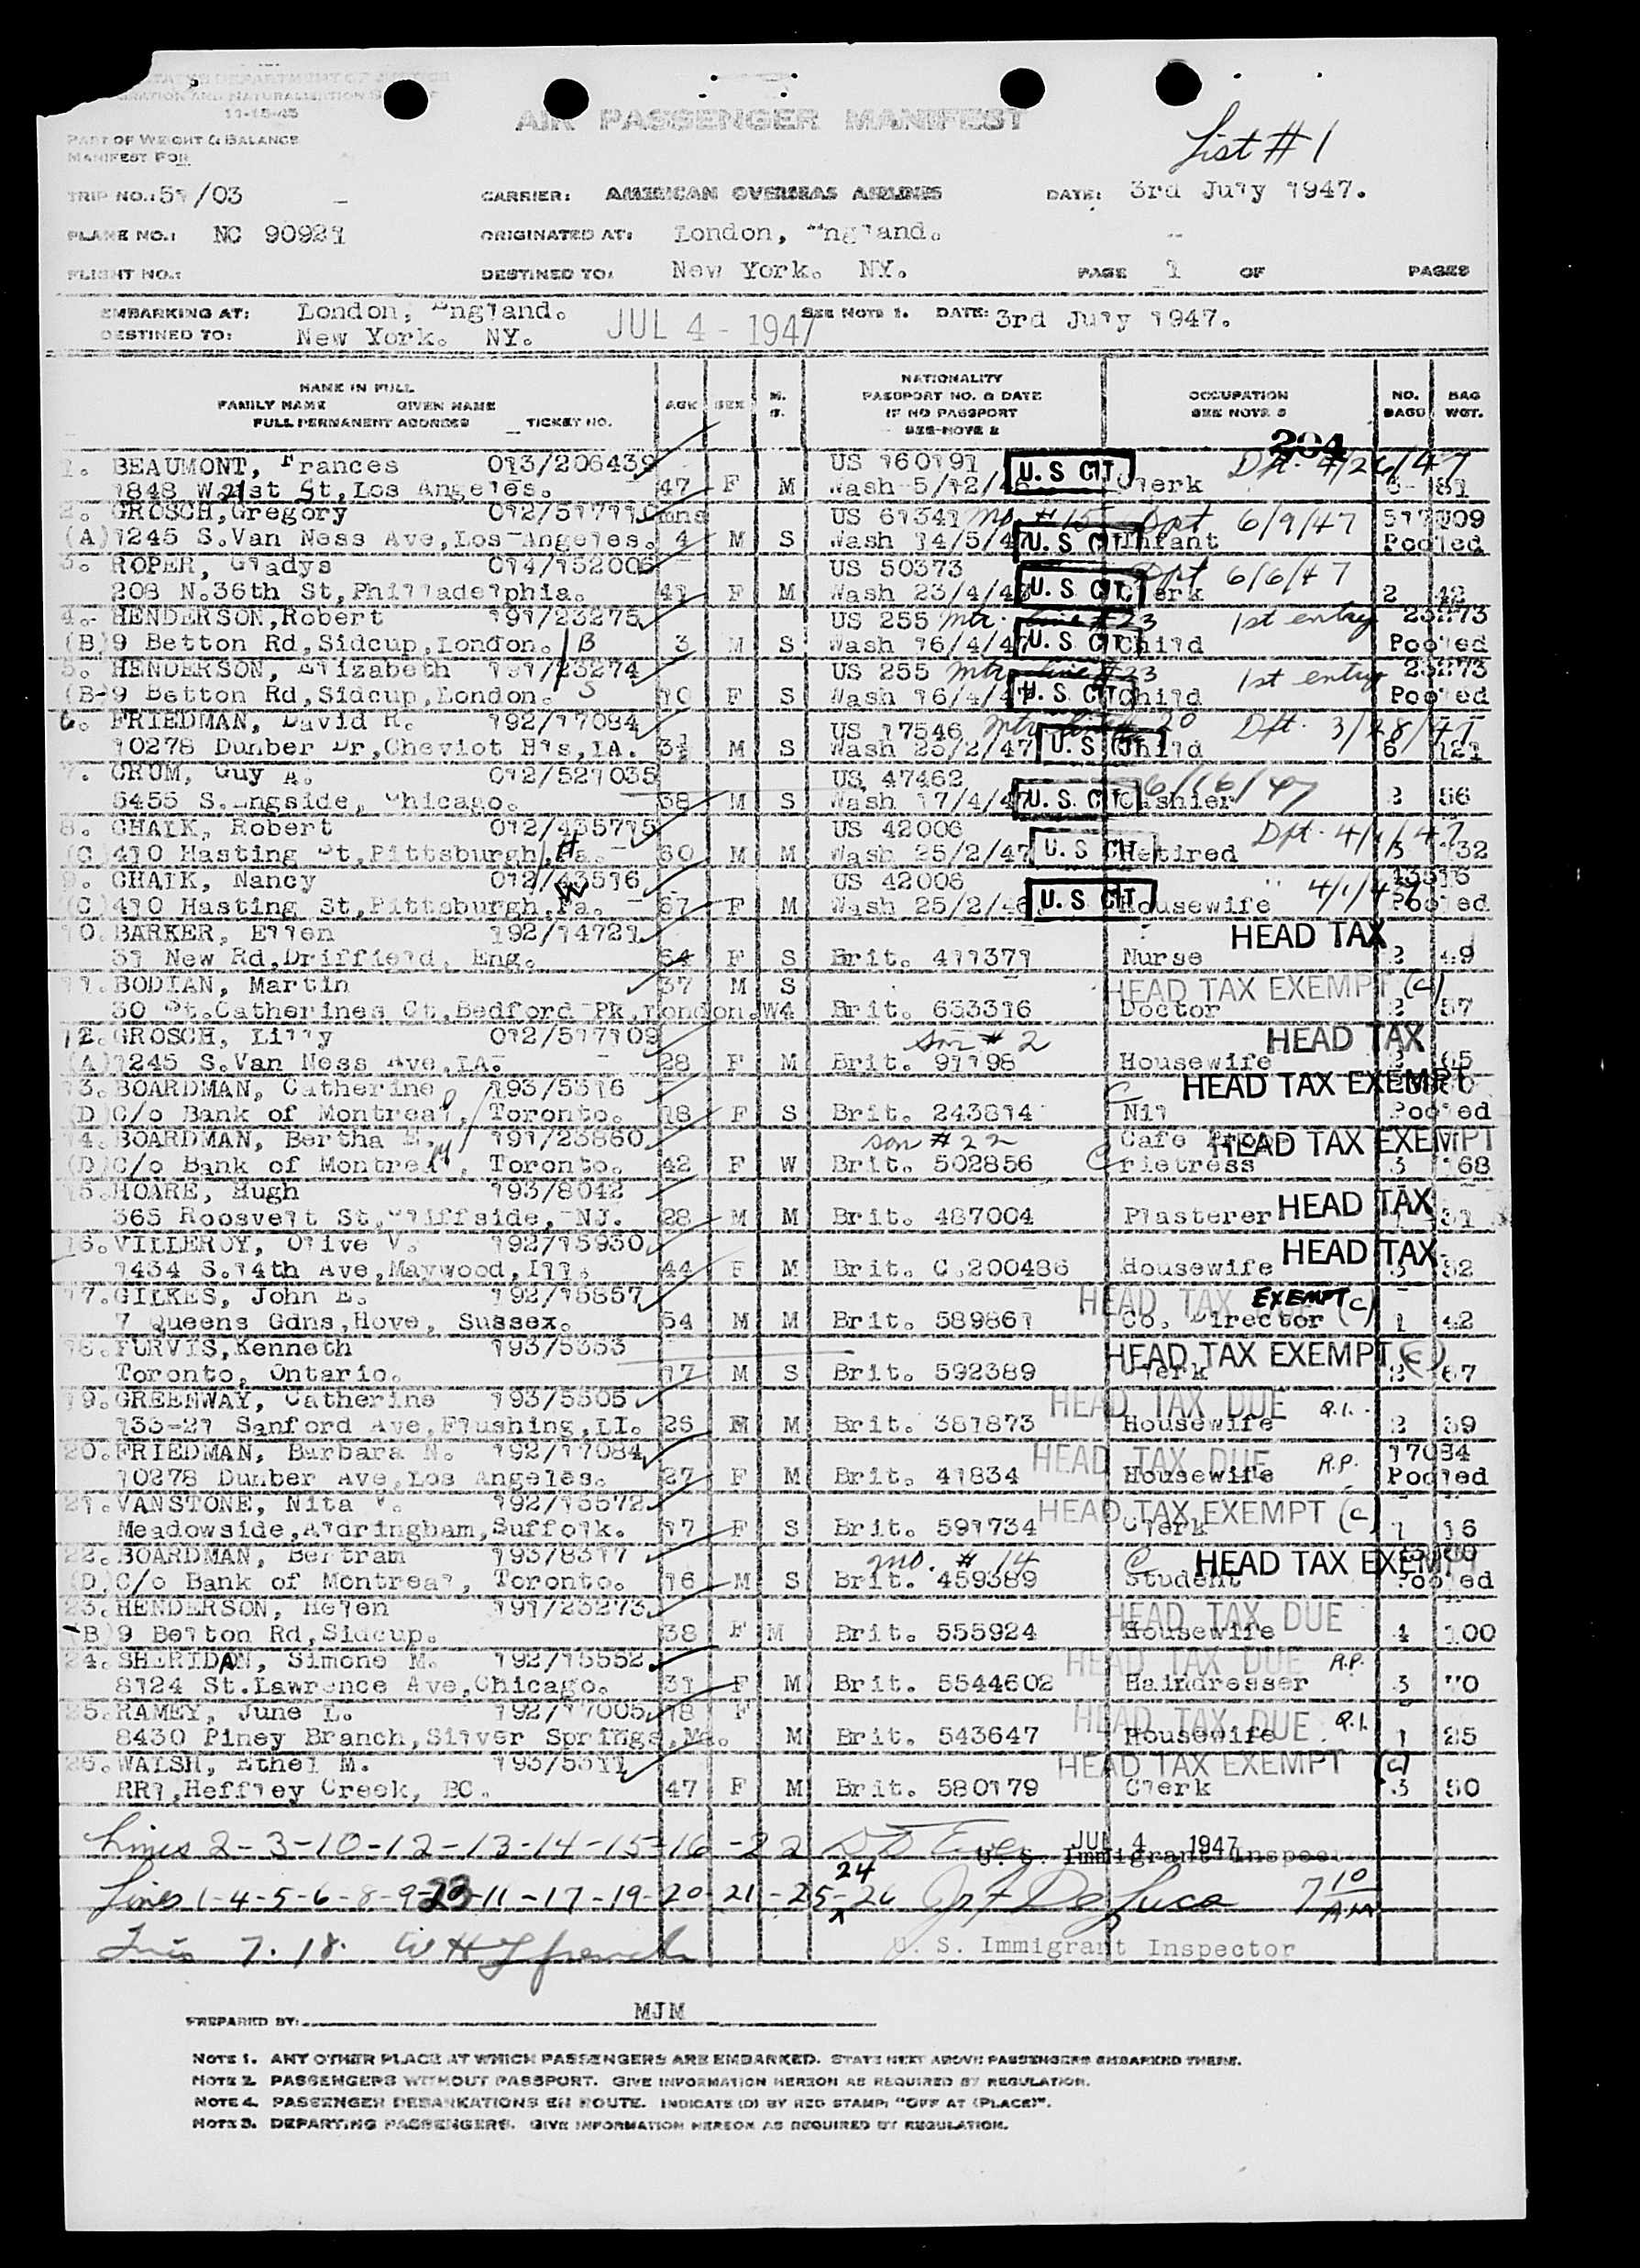 STATES DEPARTMENT OF JUSTICE
IMMIGRATION AND NATURALIZATION
11-15-45
AIR PASSENGER MANIFEST
PART OF WEIGHT & BALANCE
MANIFEST FOR
List #1
TRIP NO.: 51/03 CARRIER: AMERICAN OVERSEAS AIRLINES DATE: 3rd July 1947.
PLANE NO.: NC 90921 ORIGINATED AT: London, England.
FLIGHT NO.: DESTINED TO: New York. NY. PAGE 1 OF PAGES
EMBARKING AT: London, England. SEE NOTE 1. DATE: 3rd July 1947.
DESTINED TO: New York. NY. JUL 4 - 1947
NAME IN FULL
FAMILY NAME GIVEN NAME
FULL PERMANENT ADDRESS TICKET NO.
AGE SEX M. S.
NATIONALITY PASSPORT NO. & DATE IF NO PASSPORT SEE NOTE 2
OCCUPATION SEE NOTE 3
NO. BAGS BAG WGT.
204
1. BEAUMONT, Frances 013/206439 US 160191 Dpt. 4/26/47
1848 W 21st St, Los Angeles. 47 F M Wash 5/12/46 U.S CIT Clerk 81
2. GROSCH, Gregory 012/517110 mns US 61341 mo #15 Dpt 6/9/47 517109
(A) 1245 S.Van Ness Ave, Los Angeles. 4 M S Wash 14/5/47 U.S CIT Infant Pooled
3. ROPER, Gladys 014/152006 US 50373 Dpt 6/6/47
208 N.36th St, Philladelphia. 41 F M Wash 23/4/47 U.S CIT Clerk 2 42
4. HENDERSON, Robert 191/23275 US 255 mtr. line #23 1st entry 23273
(B) 9 Betton Rd, Sidcup, London. B 3 M S Wash 16/4/47 U.S CIT Child Pooled
5. HENDERSON, Elizabeth 191/23274 US 255 mtr line #23 1st entry 23273
(B) 9 Betton Rd, Sidcup, London. S 10 F S Wash 16/4/47 U.S CIT Child Pooled
6. FRIEDMAN, David R. 192/17084 US 17546 mtr line 20 Dpt. 3/28/47
10278 Dunber Dr, Cheviot Hls, LA. 3½ M S Wash 25/2/47 U.S CIT Child 6 121
7. CRUM, Guy A. 012/521035 US 47462 6/16/47
5455 S.Ingside, Chicago. 38 M S Wash 17/4/47 U.S. CIT Cashier 2 56
8. CHALK, Robert 012/435715 US 42006 Dpt. 4/1/47
(C) 410 Hasting St, Pittsburgh, Pa. H 60 M M Wash 25/2/47 U.S CIT Retired 132
9. CHALK, Nancy 012/43516 US 42006 " 4/1/47 43516
(C) 410 Hasting St, Pittsburgh, Pa. W 67 F M Wash 25/2/46 U.S CIT Housewife Pooled
10. BARKER, Ellen 192/14721 HEAD TAX
51 New Rd, Driffield, Eng. 64 F S Brit. 411371 Nurse 2 49
11. BODIAN, Martin 37 M S HEAD TAX EXEMPT (c)
30 St.Catherines Ct, Bedford Pk, London.W4 Brit. 633316 Doctor 2 57
12. GROSCH, Lilly 012/517109 son # 2 HEAD TAX
(A) 1245 S.Van Ness Ave, LA. 28 F M Brit. 91198 Housewife 65
13. BOARDMAN, Catherine 193/5516 C HEAD TAX EXEMPT
(D) C/o Bank of Montreal, Toronto. 18 F S Brit. 243814 Nil Pooled
14. BOARDMAN, Bertha E. 191/23860 son # 22 Cafe Prop- HEAD TAX EXEMPT
(D) C/o Bank of Montreal, Toronto. 42 F W Brit. 502856 C rietress 3 168
15. HOARE, Hugh 193/8042 HEAD TAX
365 Roosvelt St, Cliffside, NJ. 28 M M Brit. 487004 Plasterer 1 31
16. VILLEROY, Olive V. 192/15930 HEAD TAX
1434 S.14th Ave, Maywood, Ill. 44 F M Brit. C.200486 Housewife 3 52
17. GILKES, John E. 192/15857 HEAD TAX EXEMPT (c)
7 Queens Gdns, Hove, Sussex. 54 M M Brit. 589861 Co. Director 1 42
18. PURVIS, Kenneth 193/5353 HEAD TAX EXEMPT (c)
Toronto, Ontario. 17 M S Brit. 592389 Clerk 2 67
19. GREENWAY, Catherine 193/5305 HEAD TAX DUE Q.I.
153-21 Sanford Ave, Flushing, LI. 25 M Brit. 381873 Housewife 2 39
20. FRIEDMAN, Barbara N. 192/17084 HEAD TAX DUE R.P. 17084
10278 Dunber Ave, Los Angeles. 27 F M Brit. 41834 Housewife Pooled
21. VANSTONE, Nita V. 192/15572 HEAD TAX EXEMPT (c)
Meadowside, Aldringham, Suffolk. 17 F S Brit. 591734 Clerk 1 16
22. BOARDMAN, Bertram 193/8317 mo. # 14 C HEAD TAX EXEMPT
(D) C/o Bank of Montreal, Toronto. 16 M S Brit. 459389 Student Pooled
23. HENDERSON, Helen 191/23273 HEAD TAX DUE
(B) 9 Betton Rd, Sidcup. 38 F M Brit. 555924 Housewife 4 100
24. SHERIDAN, Simone M. 192/15552 HEAD TAX DUE R.P.
8124 St.Lawrence Ave, Chicago. 31 F M Brit. 5544602 Haindresser 3 70
25. RAMEY, June L. 192/17005 18 F HEAD TAX DUE Q.I.
8430 Piney Branch, Silver Springs, Md. M Brit. 543647 Housewife 1 25
26. WALSH, Ethel M. 193/5311 HEAD TAX EXEMPT (c)
RR1, Heffley Creek, BC. 47 F M Brit. 580179 Clerk 3 50
Lines 2-3-10-12-13-14-15-16-22 JUL 4 1947 U. S. Immigrant Inspec
Lines 1-4-5-6-8-9-23-11-17-19-20-21-25-24-26 De Luca 7 10 AM
7. 18. U. S. Immigrant Inspector
PREPARED BY: MJM
NOTE 1. ANY OTHER PLACE AT WHICH PASSENGERS ARE EMBARKED. STATE NEXT ABOVE PASSENGERS EMBARKED THERE.
NOTE 2. PASSENGERS WITHOUT PASSPORT. GIVE INFORMATION HEREON AS REQUIRED BY REGULATION.
NOTE 4. PASSENGER DEBARKATIONS EN ROUTE. INDICATE (D) BY RED STAMP: "OFF AT (PLACE)".
NOTE 3. DEPARTING PASSENGERS. GIVE INFORMATION HEREON AS REQUIRED BY REGULATION.